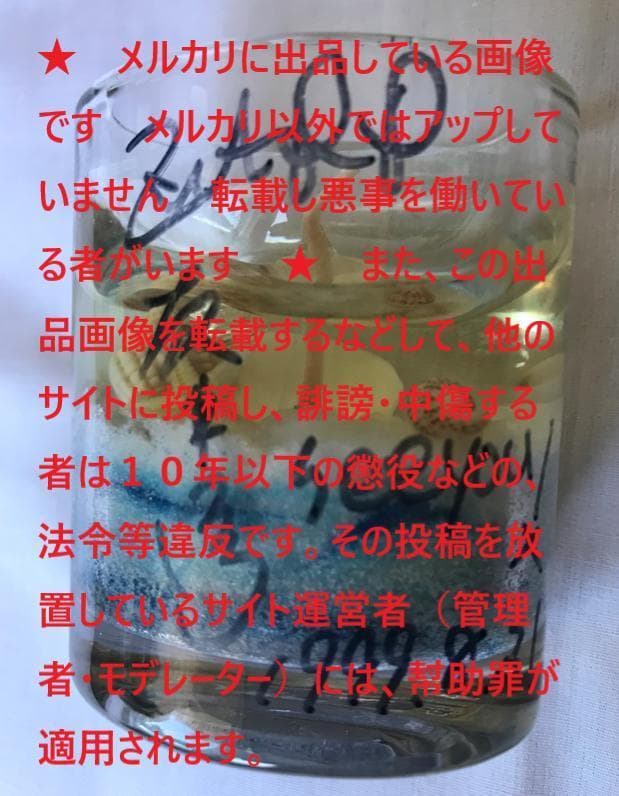 ★　メルカリに出品している画像
です　メルカリ以外ではアップして
いません　転載し悪事を働いてい
る者がいます　★　また、この出
品画像を転載するなどして、他の
サイトに投稿し、誹謗・中傷する
者は１０年以下の懲役などの、
法令等違反です。その投稿を放
置しているサイト運営者（管理
者・モデレーター）には、幇助罪が
適用されます。
ZARD